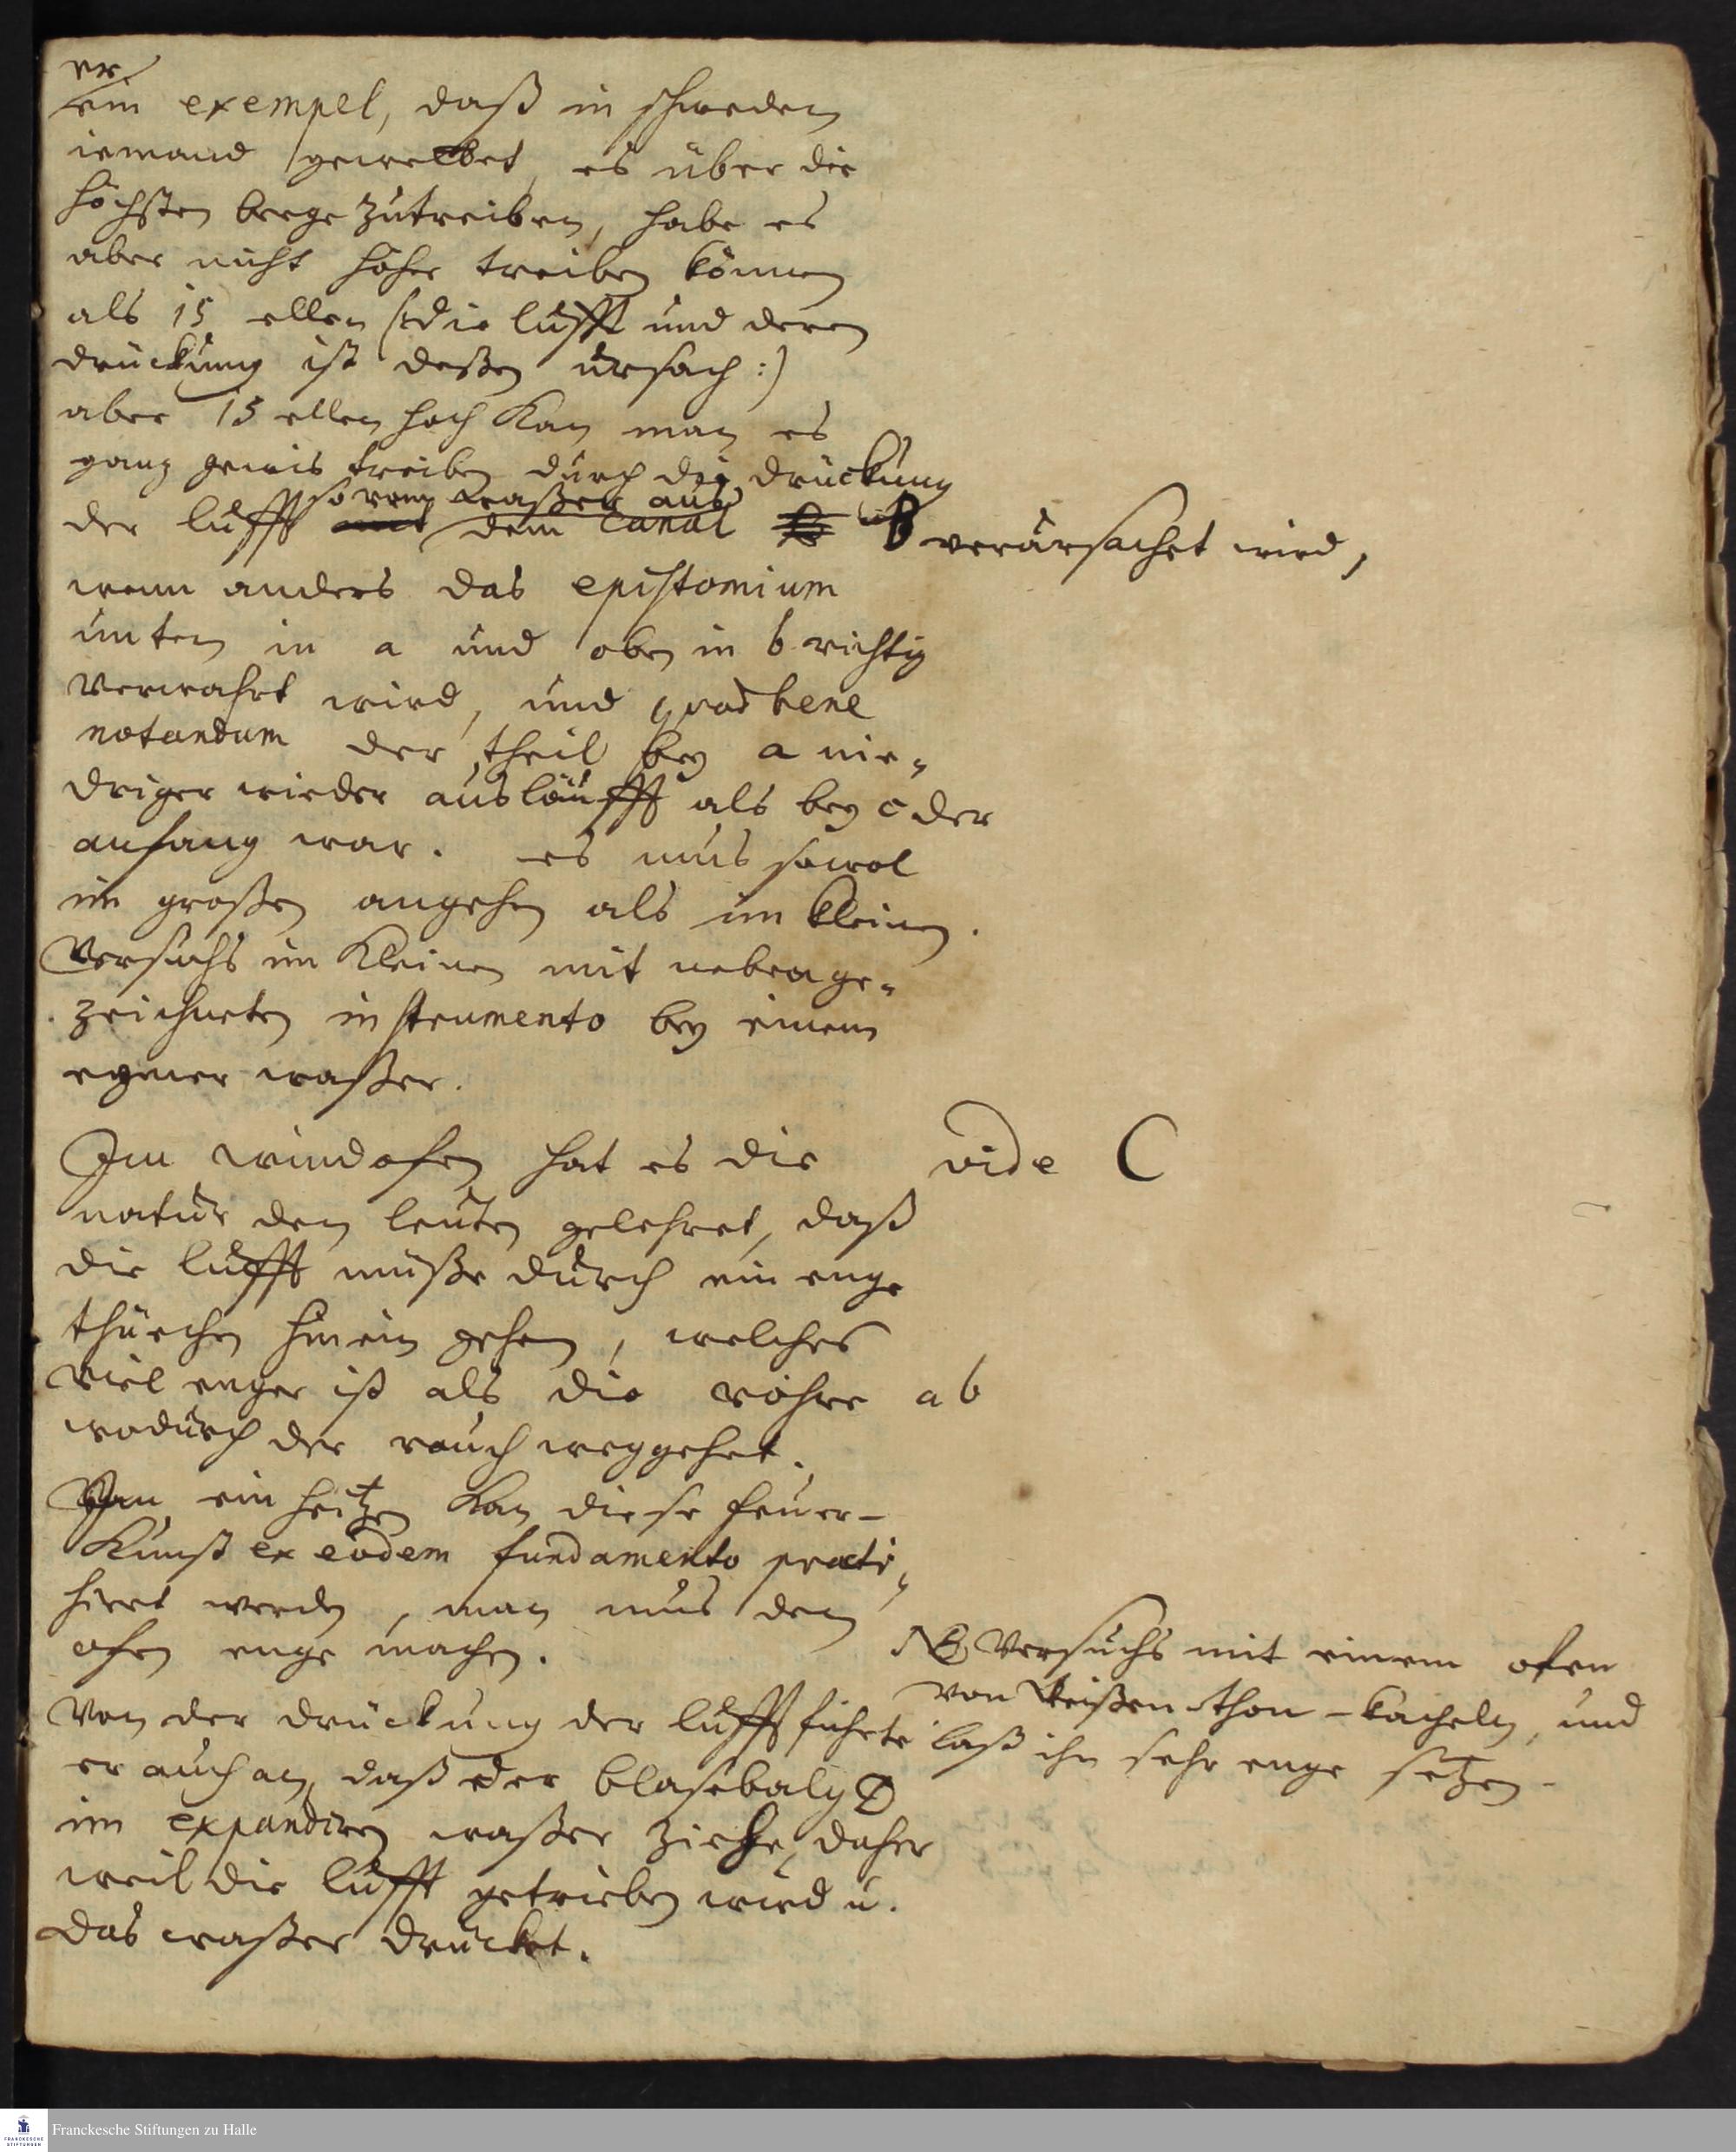 er
ein exempel, daß in schweden
iemand gewettet, es über die
höchsten berge zutreiben, habe es
aber nicht höher treiben können
als 15 ellen (: die lufft und deren
drückung ist deßen ursach :)
aber 15 ellen hoch kan man es
gantz gewis treiben durch die drückung
so vom waßer aus
der lufft dem Canal B verursachet wird,
wenn anders das epistomium
unten in a und oben in b richtig
verwahrt wird, und quod bene
notandum der theil bey a nie-
driger wieder ausläufft als bey c der
anfang war. es mus sowol
im großen angehen als im kleinen.
Versuchs im Kleinen mit nebenge-
zeichneten instrumento bey einem
eymer waßer.
Im windofen hat es die vide C
natur den leuten gelehret, daß
die lufft müße durch ein enge
thürchen hinein gehen, welches
viel enger ist als die röhre a b
wodurch der rauch weggehet.
Im einheitzen kan diese feuer-
Kunst ex eodem fundamento practi-
siert werden, man mus den
ofen enge machen.
NB Versuchs mit einem ofen
von weißen thon-kacheln, und
laß ihn sehr enge setzen.
Von der drückung der lufft führete
er auch an, daß der blasebalg D
im expandiren waßer ziehe, daher
weil die lufft getrieben wird u.
das waßer drücket.
Franckesche Stiftungen zu Halle